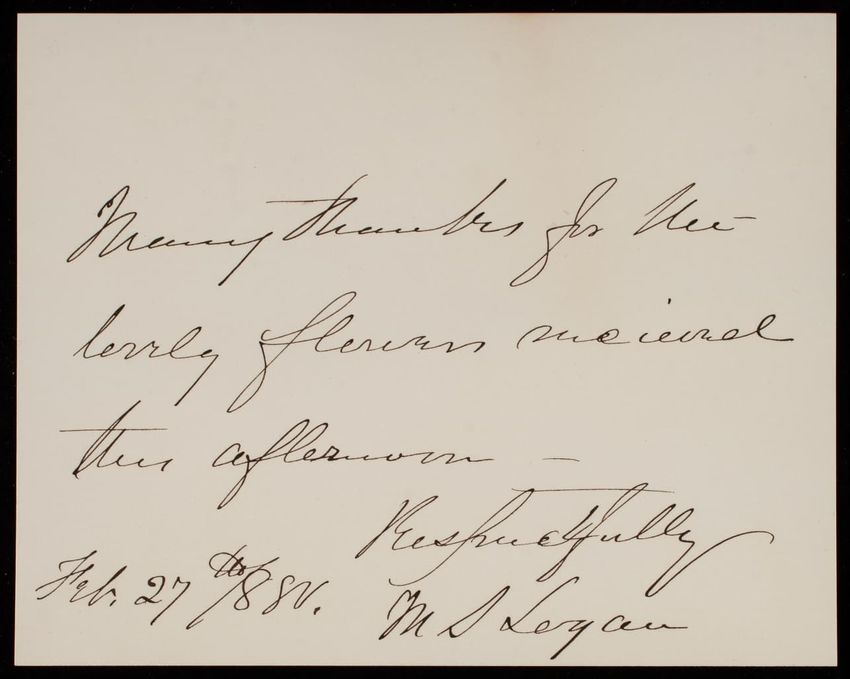 Many thanks for the
lovely flowers recieved
this afternoon –
Respectfully
Feb. 27th/88
M S Logan